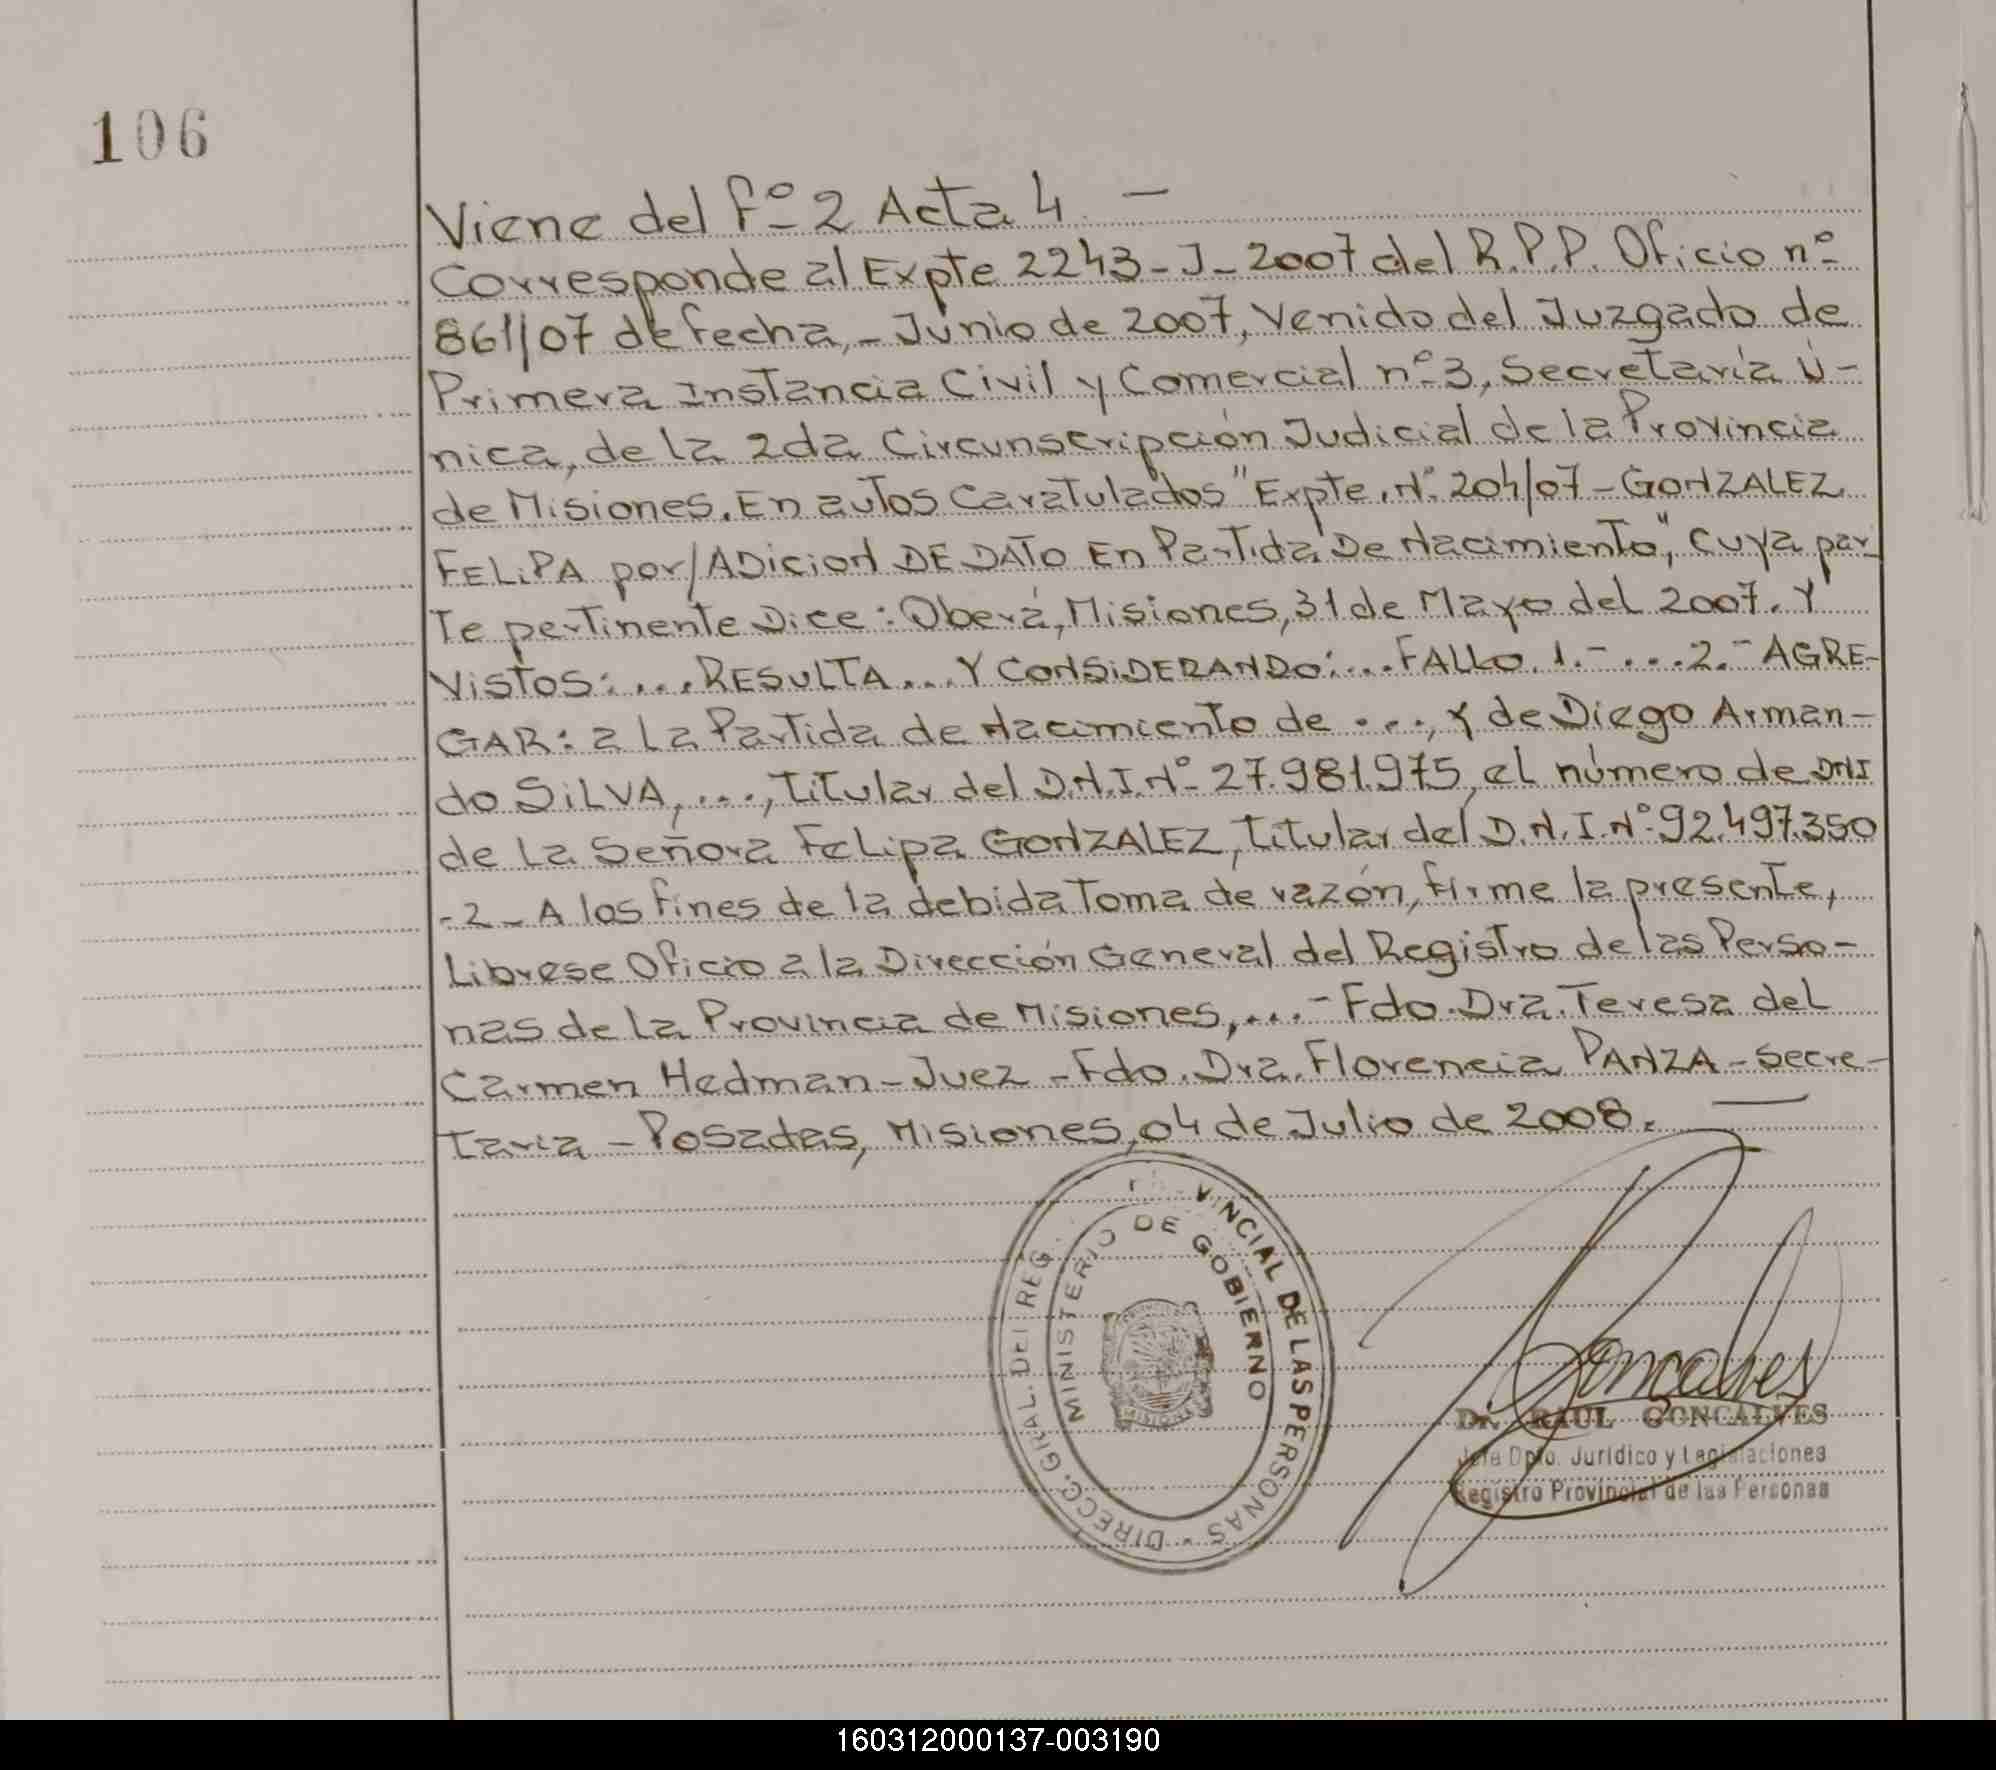 106
Viene del fº 2 Acta 4. —
Corresponde al Expte 2243-J-2007 del R.P.P. Oficio nº
861/07 de fecha,- Junio de 2007, Venido del Juzgado de
Primera Instancia Civil y Comercial nº 3, Secretaría Ú-
nica, de la 2da Circunscripción Judicial de la Provincia
de Misiones. En autos Caratulados "Expte. Nº 204/07 - GONZALEZ
FELIPA por/ADICION DE DATO En Partida De Nacimiento", Cuya par-
te pertinente Dice: Oberá, Misiones, 31 de Mayo del 2007. Y
Vistos: ... RESULTA ... Y CONSIDERANDO: ... FALLO. 1.- ... 2.- AGRE-
GAR: a La Partida de Nacimiento de ..., y de Diego Arman-
do SILVA, ..., titular del D.N.I. Nº 27.981.975, el número de DNI
de La Señora Felipa GONZALEZ, titular del D.N.I. Nº 92.497.350
.2_ A los fines de la debida toma de razón, firme la presente,
Librese Oficio a la Dirección General del Registro de las Perso-
nas de La Provincia de Misiones, ... - Fdo. Dra. Teresa del
Carmen Hedman - Juez - Fdo. Dra. Florencia PANZA - Secre-
taria - Posadas, Misiones, 04 de Julio de 2008. —
DIRECC. GRAL. DEL REG. VINCIAL DE LAS PERSONAS
MINISTERIO DE GOBIERNO
MISIONES
Goncalves
Dr. RAUL GONCALVES
Jefe Dpto. Jurídico y Legislaciones
Registro Provincial de las Personas
160312000137-003190